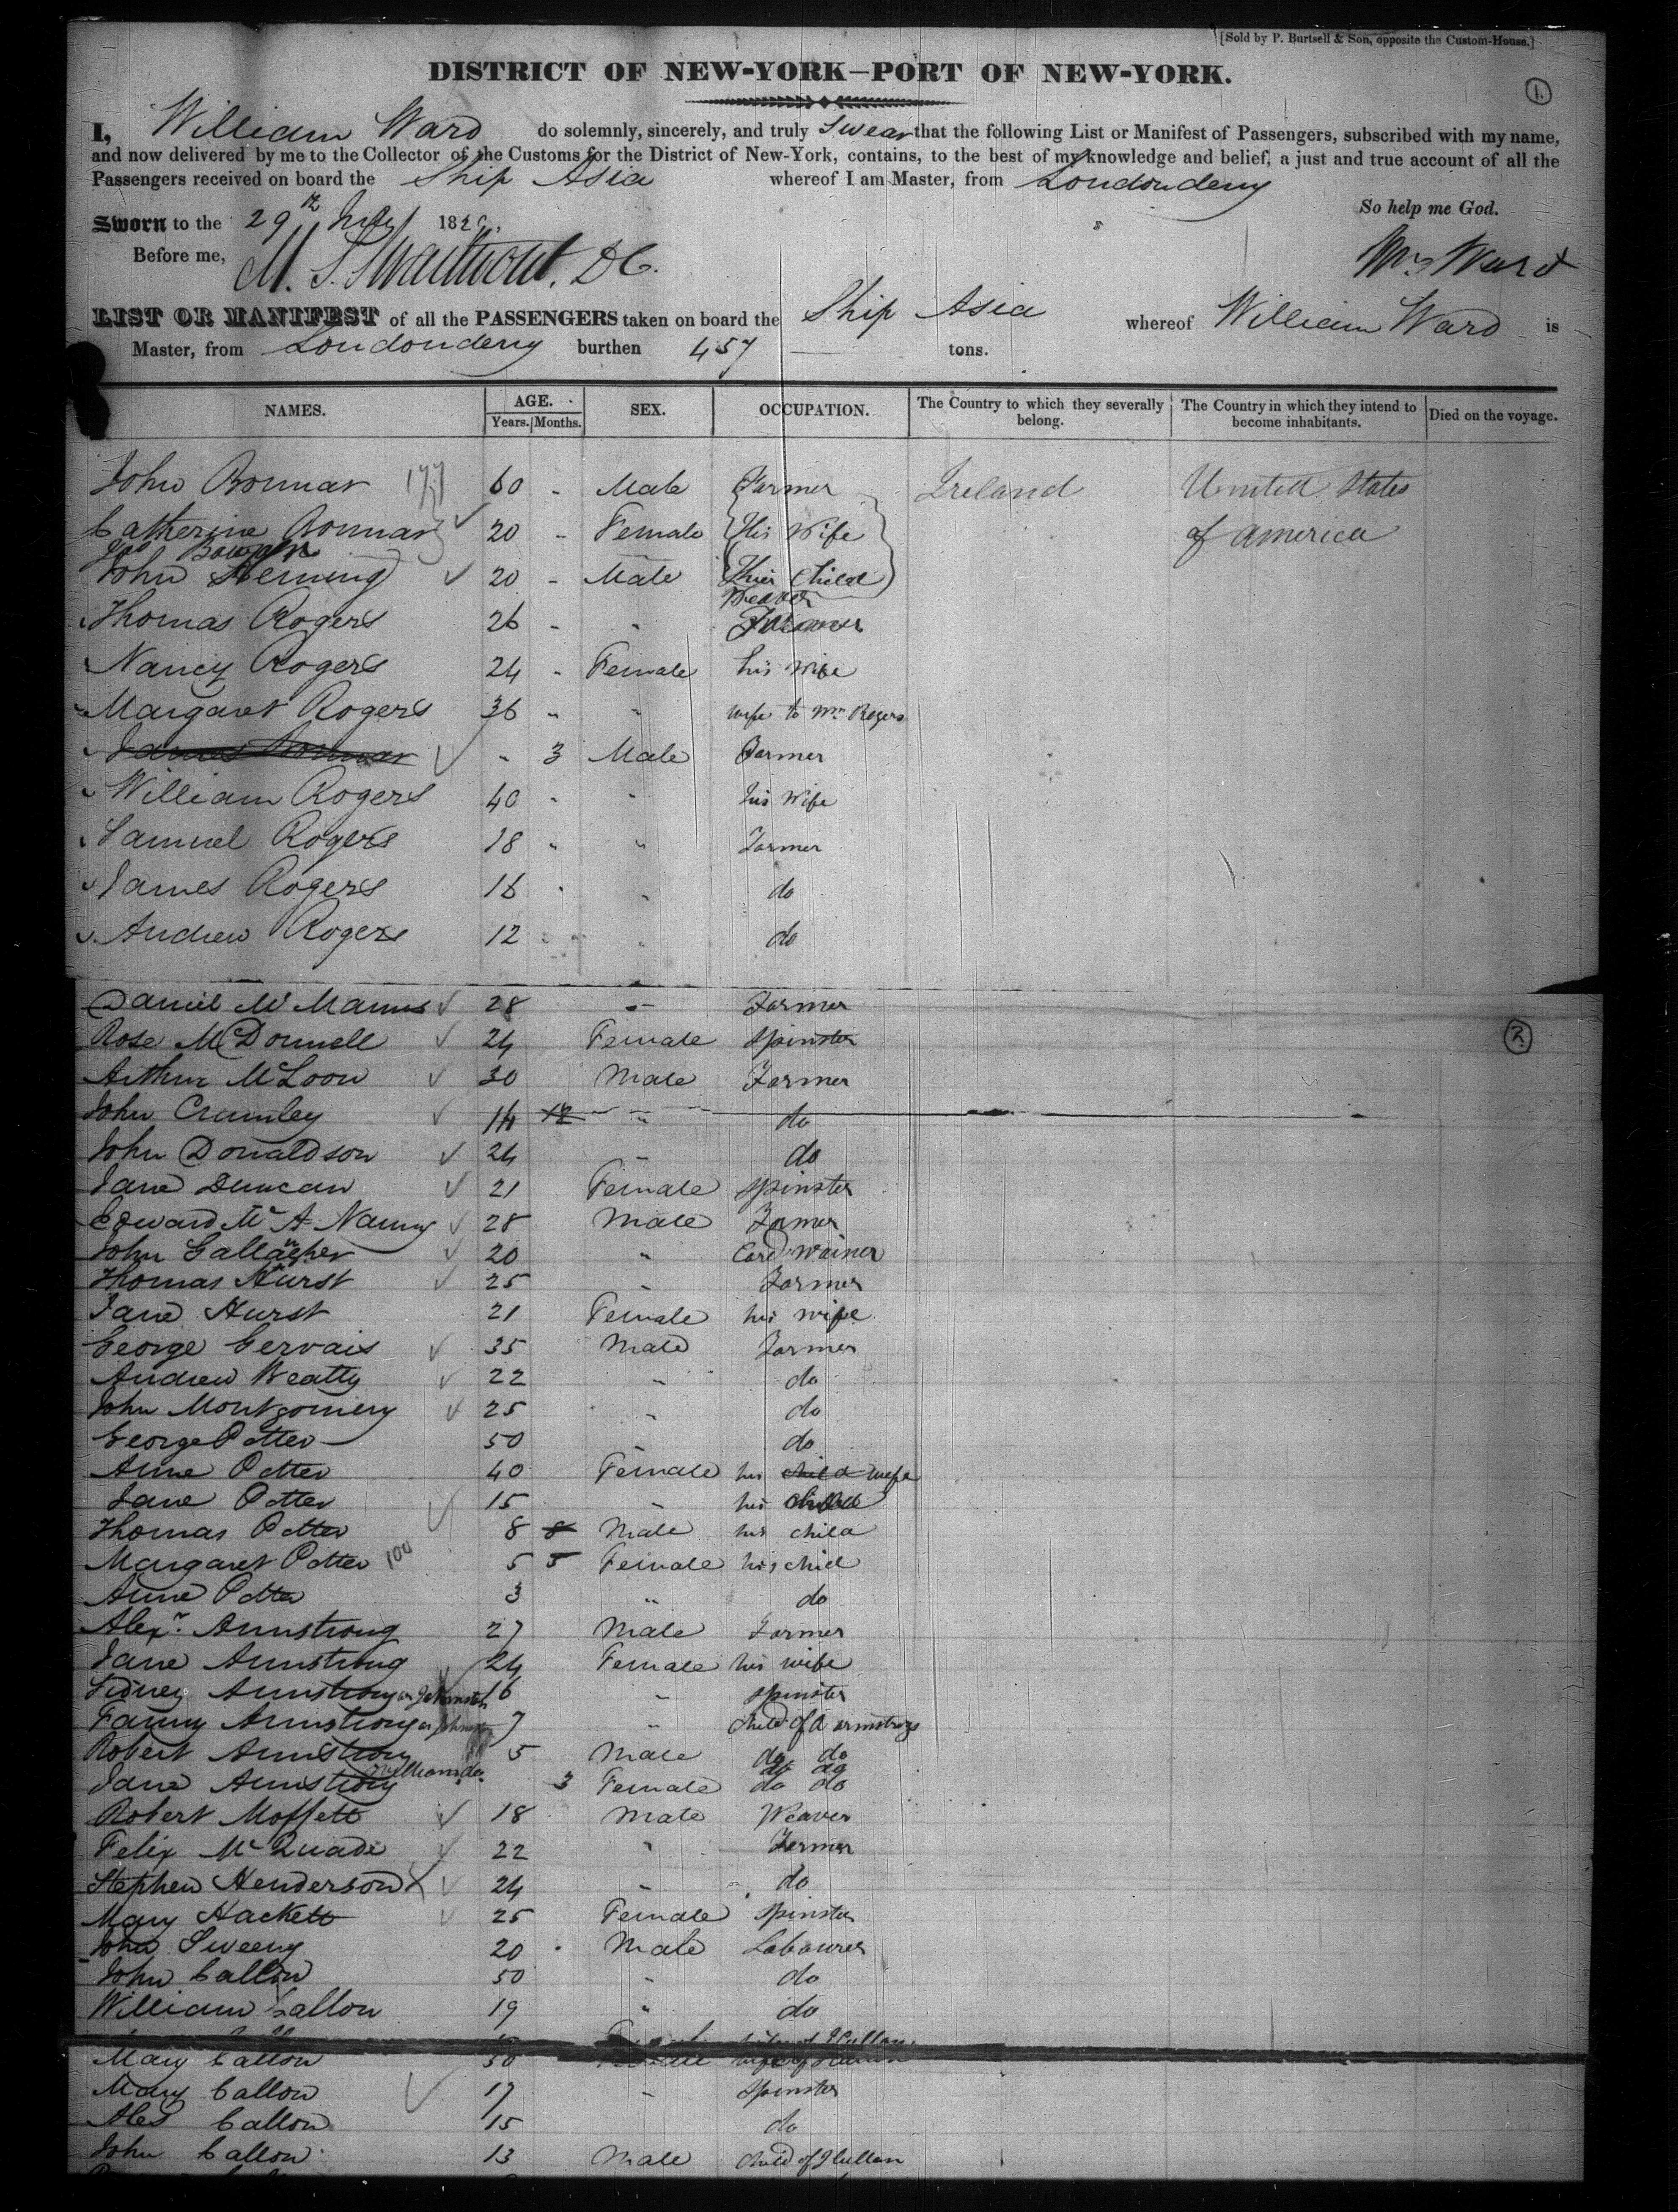 [Sold by P. Burtsell & Son, opposite the Custom-House.]
DISTRICT OF NEW-YORK—PORT OF NEW-YORK.
1.
I, William Ward do solemnly, sincerely, and truly Swear that the following List or Manifest of Passengers, subscribed with my name,
and now delivered by me to the Collector of the Customs for the District of New-York, contains, to the best of my knowledge and belief, a just and true account of all the
Passengers received on board the Ship Asia whereof I am Master, from Londonderry
So help me God.
Sworn to the 29th 182
Before me, M. S. Swartwout, D C. Wm Ward
LIST OR MANIFEST of all the PASSENGERS taken on board the Ship Asia whereof William Ward is
Master, from Londonderry burthen 457 tons.
NAMES. AGE. Years. Months. SEX. OCCUPATION. The Country to which they severally belong. The Country in which they intend to become inhabitants. Died on the voyage.
John Bonnar 60 - Male Farmer Ireland United States
Catherine Bonnar 20 - Female His Wife of America
John 20 - Male Thier Child
Weaver
Thomas Rogers 26 - "
Nancy Rogers 24 - Female his Wife
Margaret Rogers 36 " " wife to Wm Rogers
James Bonnar " 3 Male Farmer
William Rogers 40 " " his Wife
Samuel Rogers 18 " " Farmer
James Rogers 16 " " do
Andrew Rogers 12 " " do
Daniel McManus 28 " Farmer
2.
Rose McDonnell 24 Female Spinster
Arthur McLoon 30 Male Farmer
John Crumley 14 12 " do
John Donaldson 24 " do
Jane Duncan 21 Female Spinster
Edward Mc A Nanny 28 Male Farmer
John Gallagher 20 " Cordwainer
Thomas Hurst 25 " Farmer
Jane Hurst 21 Female his wife
George Gervais 35 Male Farmer
Andrew Beatty 22 " do
John Montgomery 25 " do
George Potter 50 " do
Anne Potter 40 Female his child wife
Jane Potter 15 " his child
Thomas Potter 8 8 Male his child
Margaret Potter 100 5 5 Female his chid
Anne Potter 3 " do
Alexr. Armstrong 27 Male Farmer
Jane Armstrong 24 Female his wife
Sidney Armstrong or Johnston 16 " spinster
Fanny Armstrong or Johnston 7 " child of A armstrogs
Robert Armstrong 5 Male do do
do do
Jane Armstrong 3 Female do do
Robert Moffett 18 Male Weaver
Felix McQuade 22 " Farmer
Stephen Henderson 24 " do
Mary Hackett 25 Female Spinster
John Sweeny 20 Male Labourer
John Callon 50 " do
William Callon 19 " do
Mary Callon 50 Female wife of
Mary Callon 17 " Spinster
Callon 15 do
John Callon 13 Male child of J Cullan